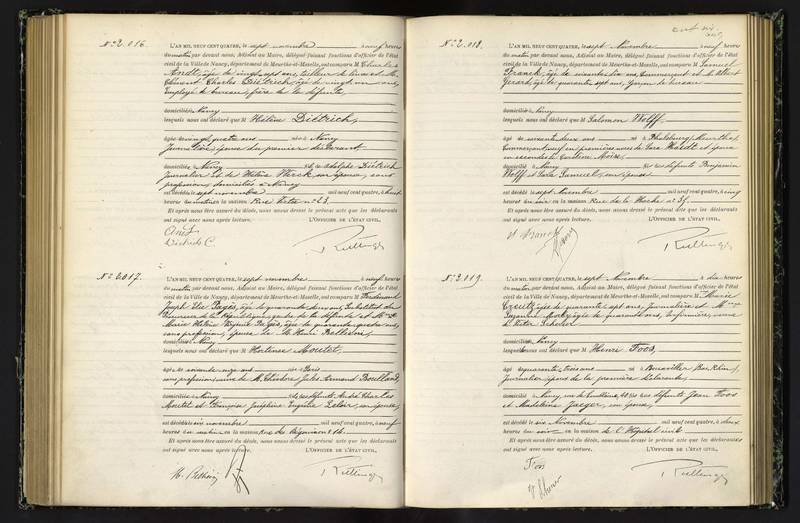 No 2,016.
L'AN MIL NEUF CENT QUATRE, le sept novembre à neuf heures
du matin par devant nous, Adjoint au Maire, délégué faisant fonctions d'officier de l'état
civil de la Ville de Nancy, département de Meurthe-et-Moselle, ont comparu M Charles
âgé de vingt sept ans, tailleur de
Charles Dietrich, âgé de vingt
Employé de bureau, frère de la défunte,
domiciliés à Nancy
lesquels nous ont déclaré que M Hélène Dietrich,
âgée de vingt quatre ans née à Nancy
Journalière, épouse du premier déclarant
domiciliée à Nancy fille de Adolphe Dietrich
Journalier et de Hélène son épouse, sans
profession, domiciliés à Nancy
est décédée le sept novembre mil neuf cent quatre, à huit
heures du matin en la maison Rue n° 23.
Et après nous être assuré du décès, nous avons dressé le présent acte que les déclarants
ont signé avec nous après lecture. L'OFFICIER DE L'ÉTAT CIVIL,
Dietrich C.
No 2,017.
L'AN MIL NEUF CENT QUATRE, le sept novembre à neuf heures
du matin, par devant nous, Adjoint au Maire, délégué faisant fonctions d'officier de l'état
civil de la Ville de Nancy, département de Meurthe-et-Moselle, ont comparu M Ferdinand
Joseph Elie Pagès, âgé de quarante ans, Substitut du
Procureur de la République, gendre de la défunte et Mme
Marie Hélène Virginie Pagès, âgée de quarante quatre ans,
sans profession, épouse de M. Henri
domiciliés à Nancy
lesquels nous ont déclaré que M Hortense Moutet,
âgée de soixante onze ans née à Paris
sans profession, veuve de M. Théodore Jules Armand Bouilland,
domiciliée à Nancy fille des défunts André Charles
Moutet et Françoise Joséphine Eugénie son épouse,
est décédée le six novembre mil neuf cent quatre, à neuf
heures du matin en la maison Rue
Et après nous être assuré du décès, nous avons dressé le présent acte que les déclarants
ont signé avec nous après lecture. L'OFFICIER DE L'ÉTAT CIVIL,
No 2,018.
L'AN MIL NEUF CENT QUATRE, le sept Novembre à neuf heures
du matin par devant nous, Adjoint au Maire, délégué faisant fonctions d'officier de l'état
civil de la Ville de Nancy, département de Meurthe-et-Moselle, ont comparu M Samuel
Franck, âgé de soixante dix ans, Commerçant et M. Albert
Gérard, âgé de quarante sept ans, Garçon de bureau
domiciliés à Nancy
lesquels nous ont déclaré que M Salomon Wolff,
âgé de soixante deux ans né à Phalsbourg (Meurthe)
Commerçant, veuf en premières noces de Sara Haedt et époux
en secondes de Caroline Moïse,
domicilié à Nancy fils des défunts Benjamin
Wolff et Sara Samuel, son épouse
est décédé le sept Novembre mil neuf cent quatre, à cinq
heures du en la maison Rue de la Hache n° 37.
Et après nous être assuré du décès, nous avons dressé le présent acte que les déclarants
ont signé avec nous après lecture. L'OFFICIER DE L'ÉTAT CIVIL,
No 2,019.
L'AN MIL NEUF CENT QUATRE, le sept Novembre à dix heures
du matin, par devant nous, Adjoint au Maire, délégué faisant fonctions d'officier de l'état
civil de la Ville de Nancy, département de Meurthe-et-Moselle, ont comparu M Marie
âgée de quarante sept ans, Journalière et Mme
Suzanne âgée de quarante ans, Infirmière, veuve
de Victor
domiciliés à Nancy
lesquels nous ont déclaré que M Henri Toos,
âgé de quarante trois ans né à (Bas Rhin)
Journalier, époux de la première déclarante
domicilié à Nancy, fils des défunts Jean Toos
et Madeleine Jaeger, son épouse,
est décédé le six Novembre mil neuf cent quatre, à deux
heures du soir en la maison de l'Hôpital civil
Et après nous être assuré du décès, nous avons dressé le présent acte que les déclarants
ont signé avec nous après lecture. L'OFFICIER DE L'ÉTAT CIVIL,
Toos